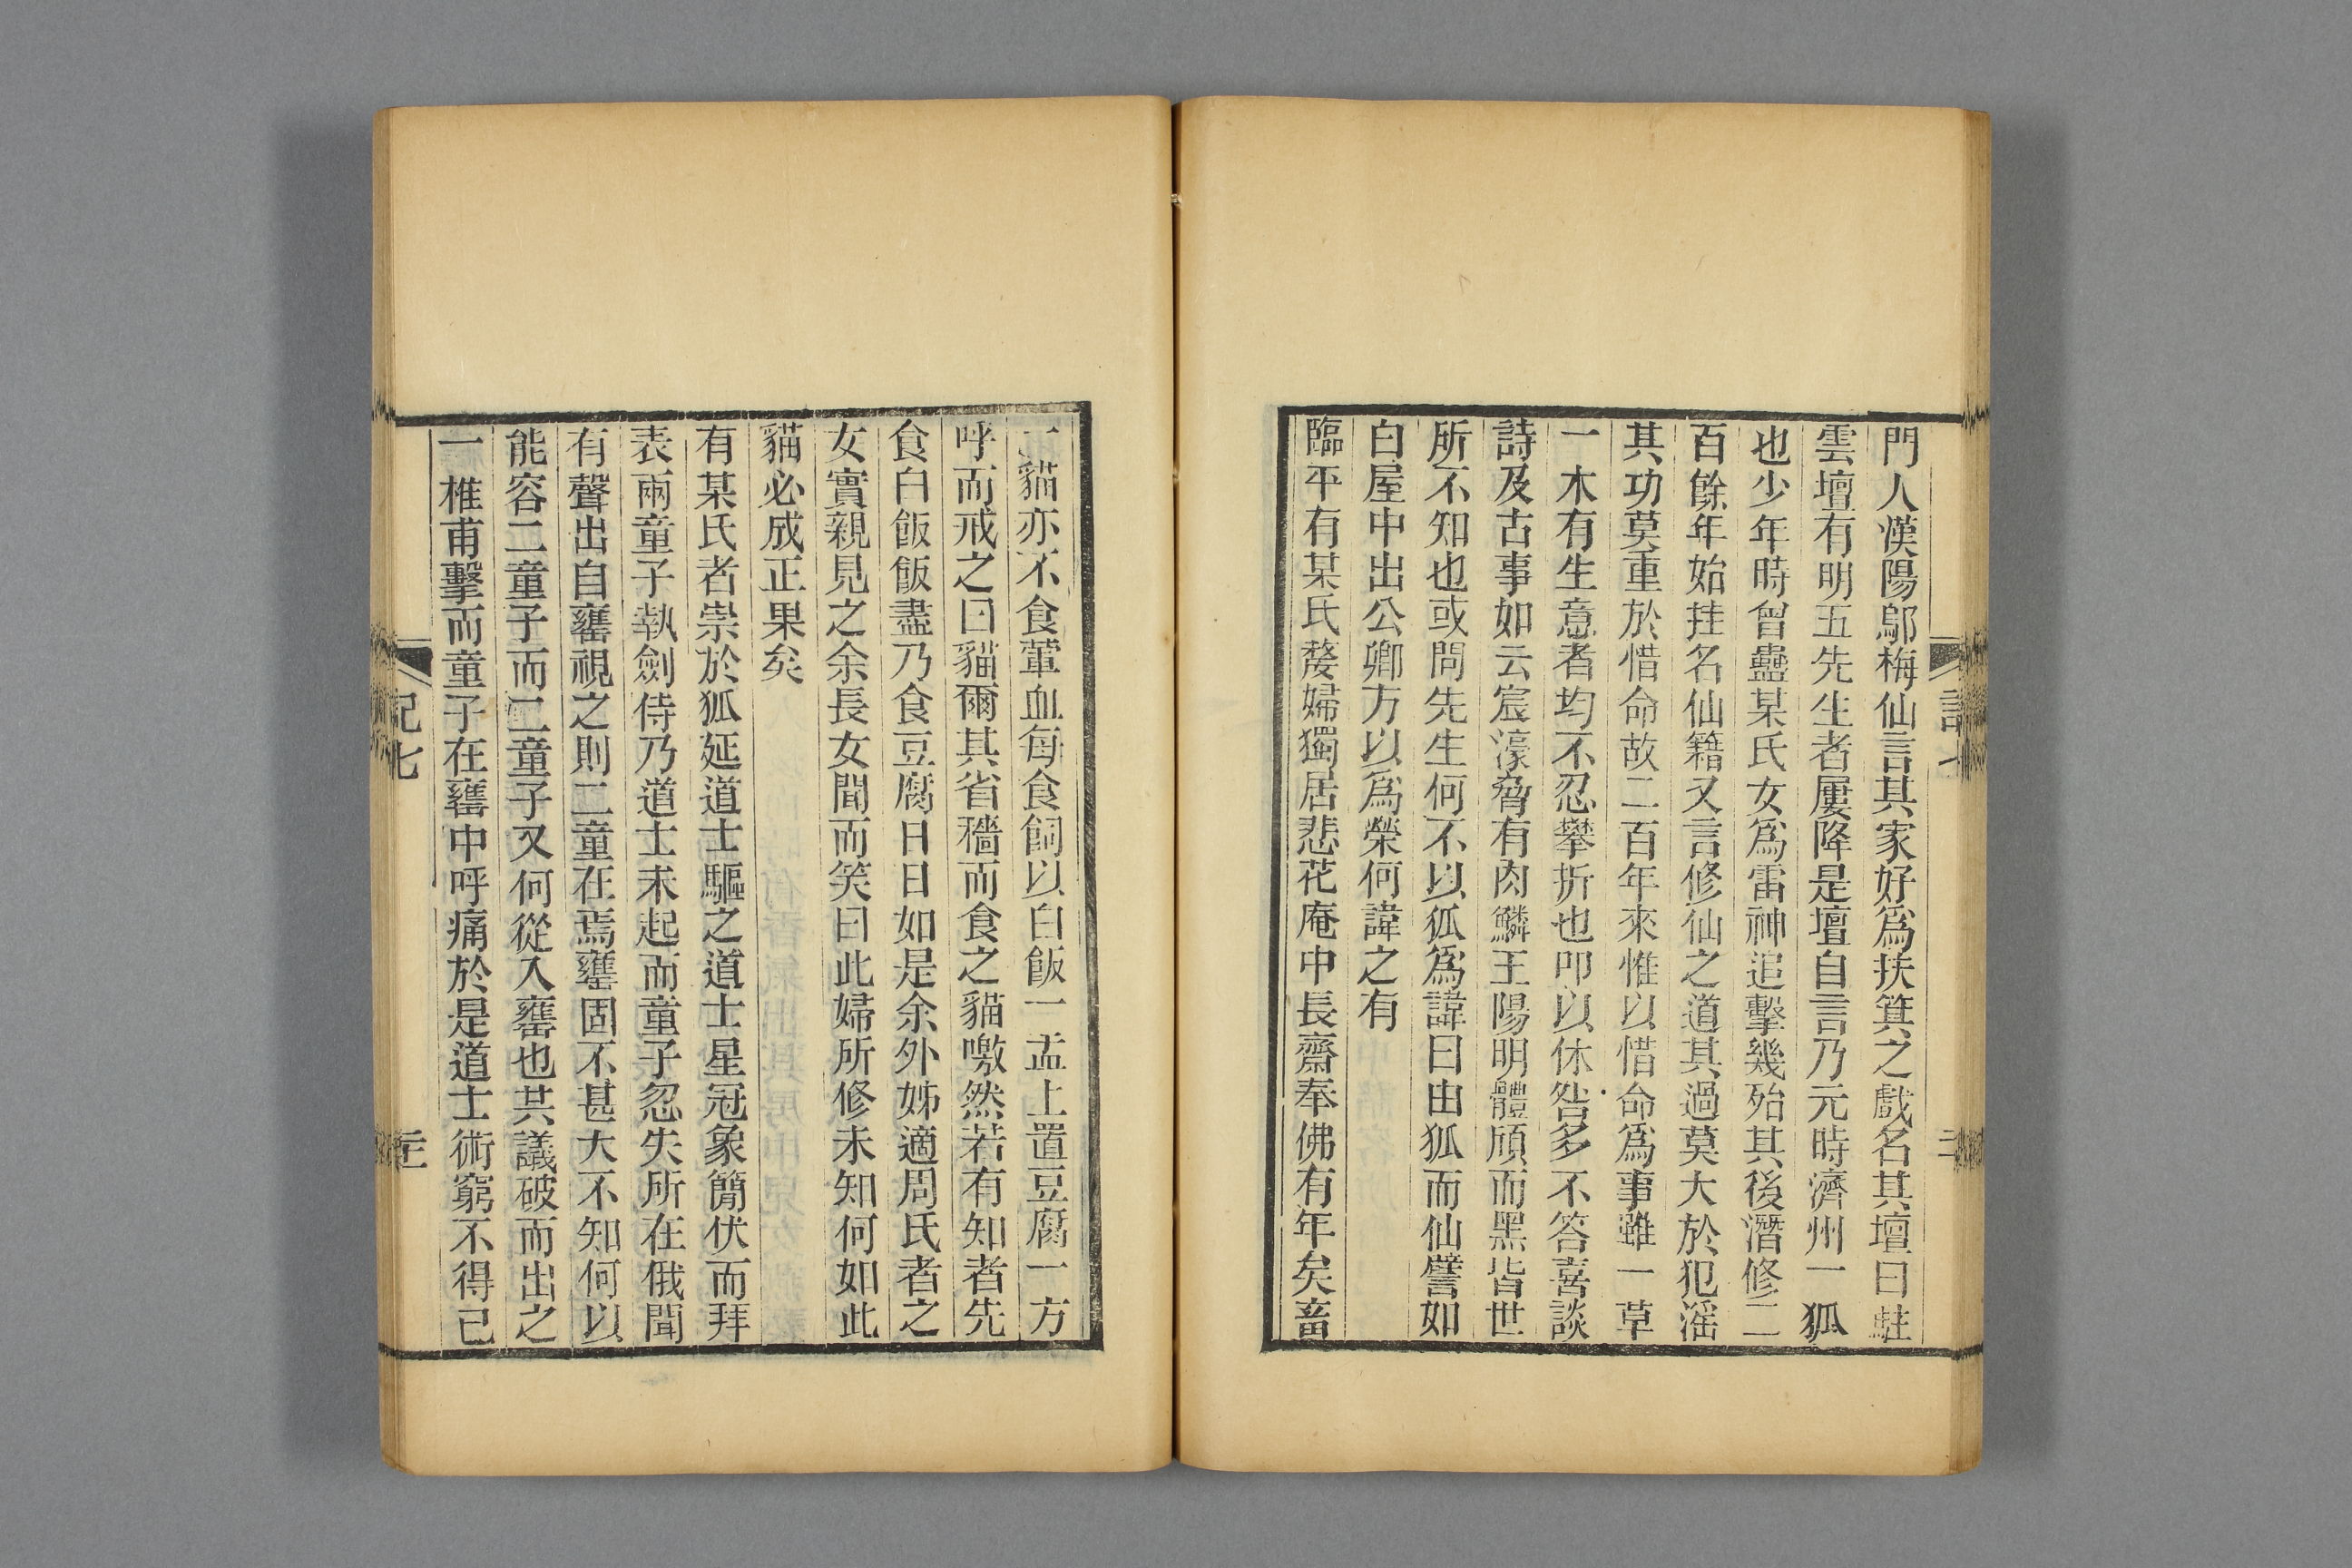 門人漢陽鄔梅仙言其家好爲扶箕之戲名其壇曰駐
雲壇有明五先生者屢降是壇自言乃元時濟州一狐
也少年時曾蠱某氏女爲雷神追擊幾殆其後潛修二
百餘年始挂名仙籍又言修仙之道其過莫大於犯滛
其功莫重於惜命故二百年來惟以惜命爲事雖一草
一木有生意者均不忍攀折也叩以休咎多不答喜談
詩及古事如云宸濠脅有肉鱗王陽明體頎而黑皆世
所不知也或問先生何不以狐爲諱曰由狐而仙譬如
白屋中出公卿方以爲榮何諱之有
臨平有某氏嫠婦獨居悲花庵中長齋奉佛有年矣畜
一貓亦不食葷血每食飼以白飯一盂上置豆腐一方
呼而戒之曰貓爾其省穡而食之貓噭然若有知者先
食白飯飯盡乃食豆腐日日如是余外姊適周氏者之
女實親見之余長女聞而笑曰此婦所修未知何如此
貓必成正果矣
有某氏者祟於狐延道士驅之道士星冠象簡伏而拜
表兩童子執劍侍乃道士未起而童子忽失所在俄聞
有聲出自罋視之則二童在焉罋固不甚大不知何以
能容二童子而二童子又何從入罋也其議破而出之
一椎甫擊而童子在罋中呼痛於是道士術窮不得已
記七